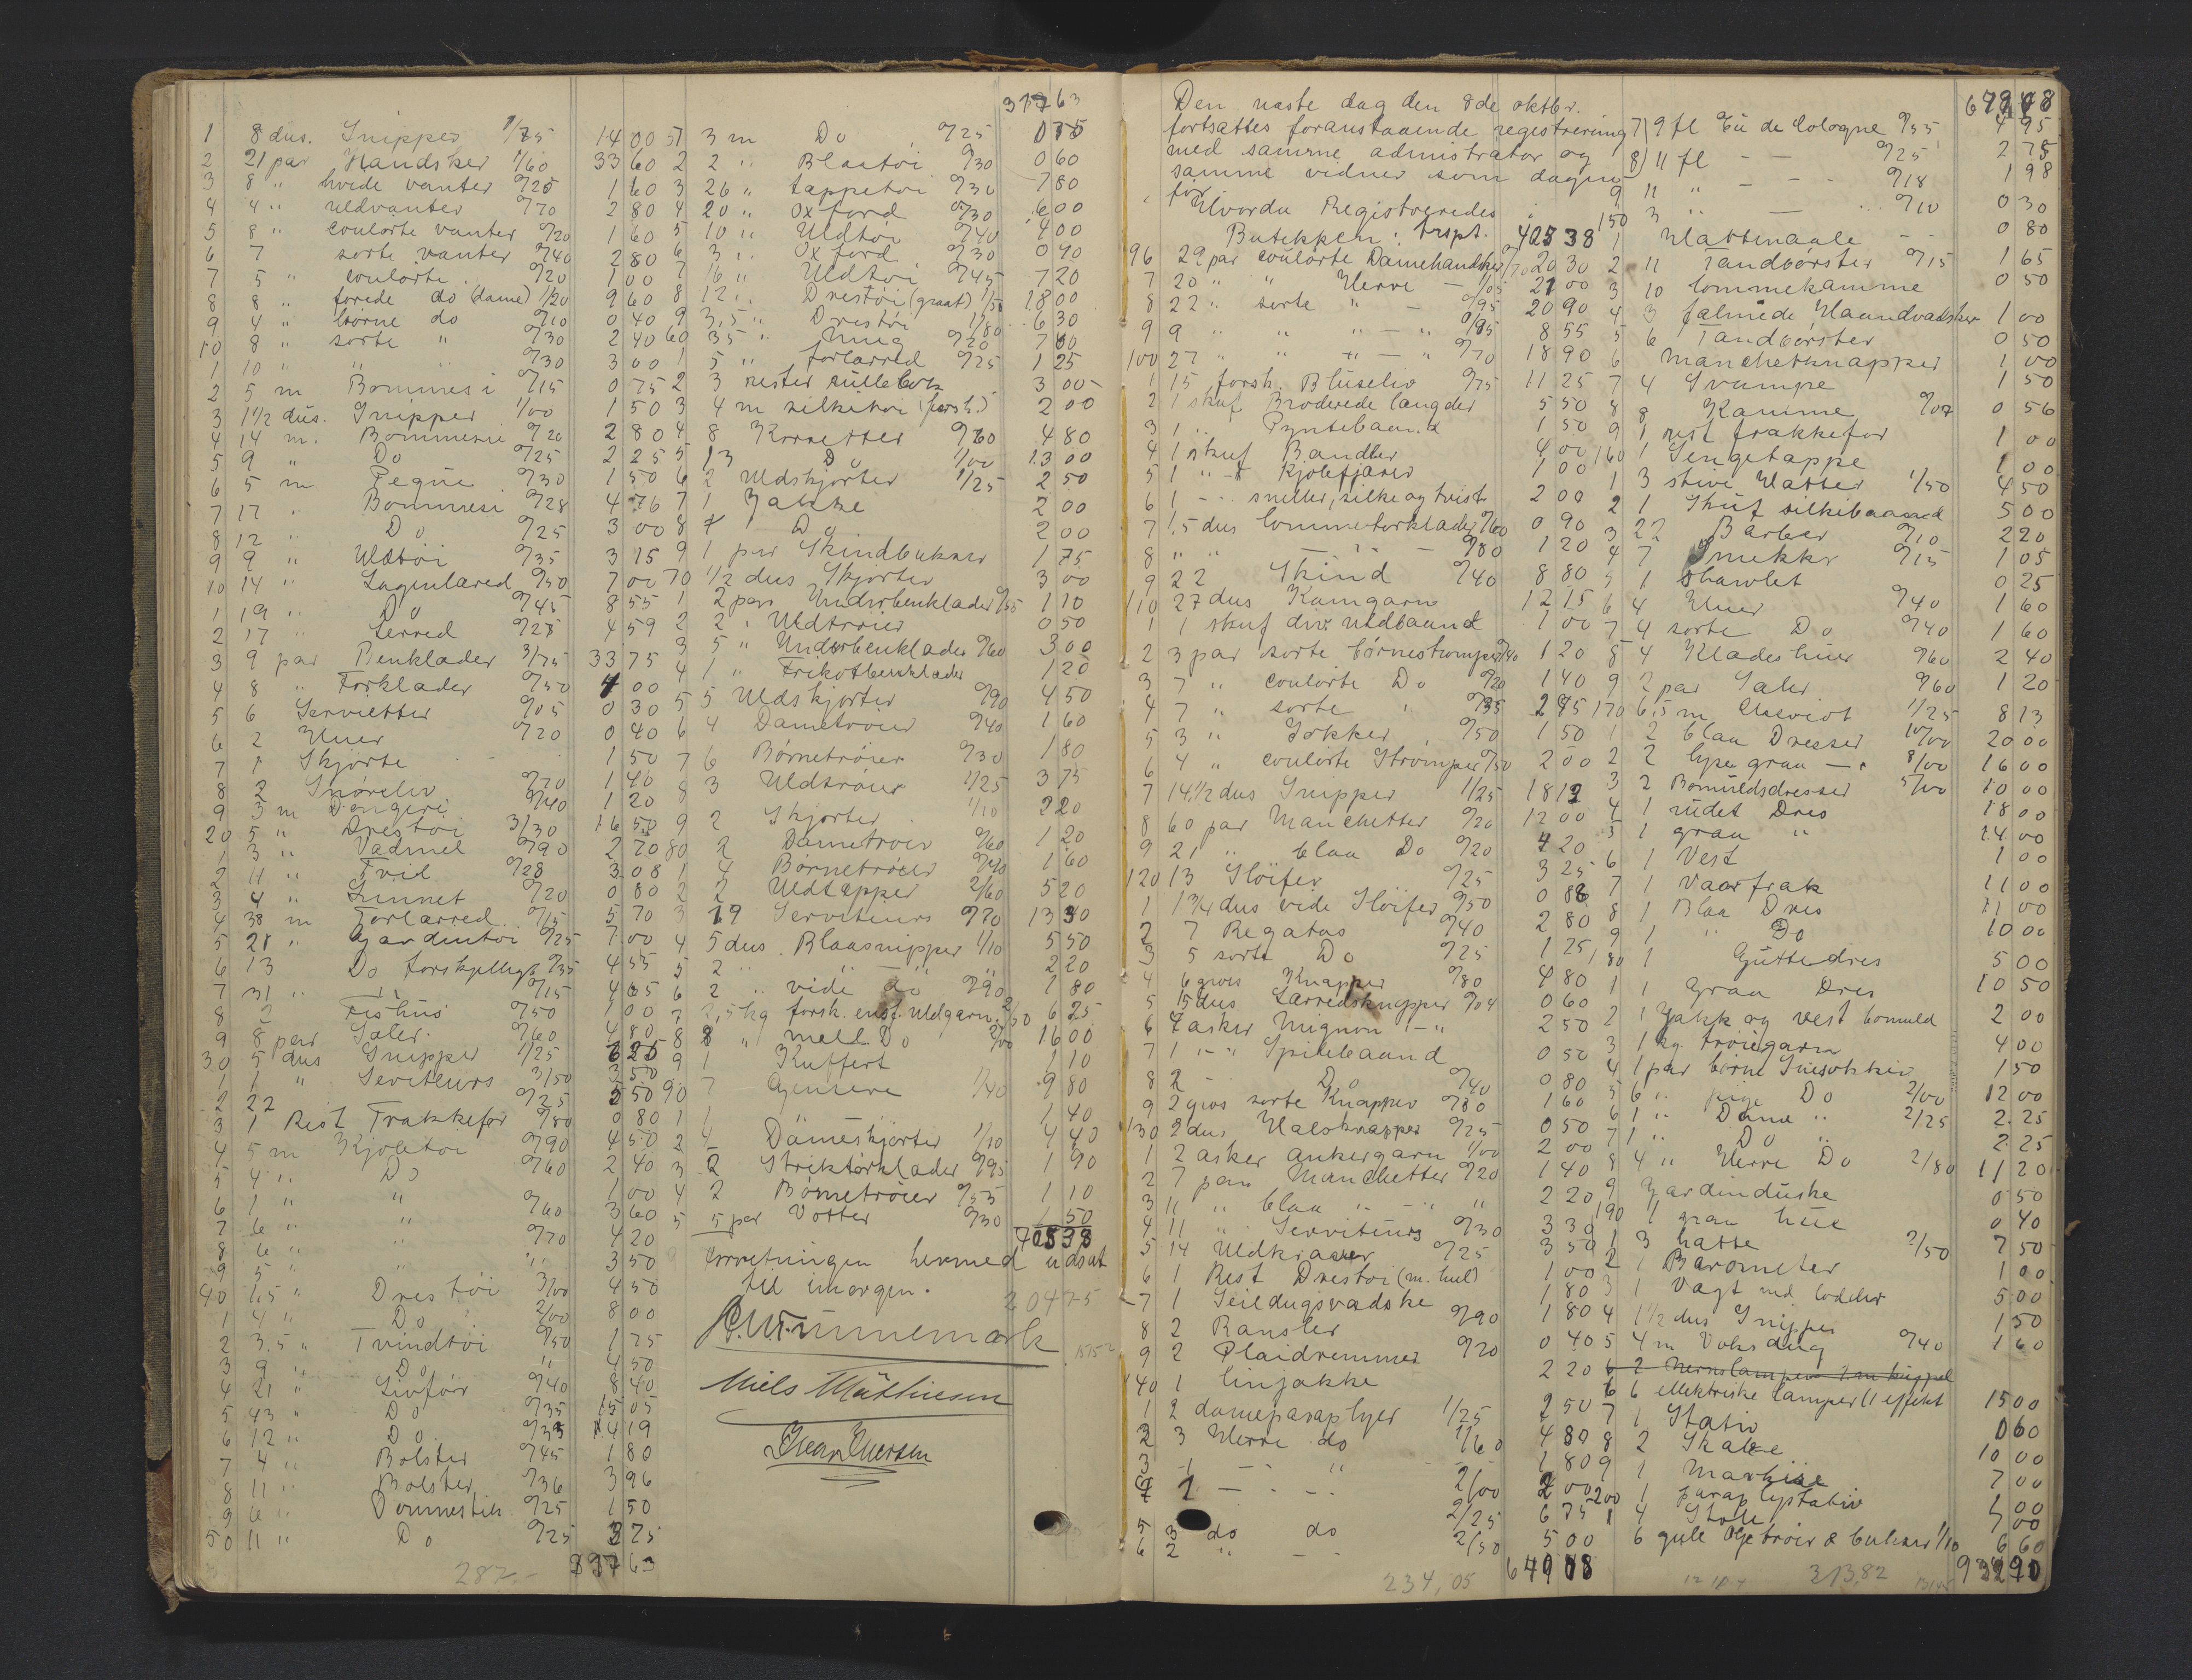 1 8 dus. Snipper 1/75 14 00
2 21 par Handsker 1/60 33 60
3 8 " hvide vanter 0/20 1 60
4 4 " uldvanter 0/70 2 80
5 8 " coulörte vanter 0/20 1 60
6 7 sorte vanter 0/40 2 80
7 5 " coulörte 0/20 1 00
8 8 " forede do (dame) 1/20 9 60
9 4 " börne do 0/10 0 40
10 8 " sorte " 0/30 2 40
1 10 " " " 0/30 3 00
2 5 m Bommesi 0/15 0 75
3 1 1/2 dus. Snipper 1/00 1 50
4 14 m. Bommesi 0/20 2 80
5 9 " Do 0/25 2 25
6 5 m Peque 0/30 1 50
7 17 " Bommesi 0/28 4 76
8 12 " Do 0/25 3 00
9 9 " Uldtöi 0/35 3 15
10 14 " Lagenlæred 0/50 7 00
1 19 " Do 0/45 8 55
2 17 " Lerred 0/27 4 59
3 9 par Benklæder 3/75 33 75
4 8 " Forklæder 0/50 4 00
5 6 Servietter 0/05 0 30
6 2 Huer 0/20 0 40
7 1 Skjorte 1 50
8 2 Snöreliv 0/70 1 40
9 3 m Dongeri 0/40 1 20
20 5 " Drestöi 3/30 16 50
1 3 " Vadmel 0/90 2 70
2 11 " Tvid 0/28 3 08
3 4 " Linnet 0/20 0 80
4 38 m Forlærred 0/15 5 70
5 28 " Gardintöi 0/25 7 00
6 13 Do forskjellige 0/35 4 55
7 31 " " 0/15 4 65
8 2 Fishus 0/50 1 00
9 8 par Seler 0/60 4 80
30 5 dus Snipper 1/25 6 25
1 1 " Serviteurs 3/50 3 50
2 22 0/25 5 50
3 1 Rest Frakkefor 0/80 0 80
4 5 m Kjoletöi 0/90 4 50
5 4 " Do 0/60 2 40
6 1 " " 1 00
7 6 " " 0/60 3 60
8 6 " " 0/70 4 20
9 5 " " " 3 50
40 1,5 " Drestöi 3/00 4 50
1 4 " Do 2/00 8 00
2 3.5 " Tvindtöi 0/50 1 75
3 9 " Do " 4 50
4 21 " Livför 0/40 8 40
5 43 " Do 0/35 15 05
6 12 " Do 0/35 4 19
7 4 " Bolster 0/45 1 80
8 11 " Bolster 0/36 3 96
9 6 " Dommestik 0/25 1 50
50 11 " Do 0/25 2 75
287.- 317 63
317 63
51 3 m Do 0/25 0 75
2 2 " Blaatöi 0/30 0 60
3 26 " tappetöi 0/30 7 80
4 20 " Oxford 0/30 6 00
5 10 " Uldtöi 0/40 4 00
6 3 " Oxford 0/30 0 90
7 16 " Uldtöi 0/45 7 20
8 12 " Drestöi (graat) 1/50 18 00
9 3,5 " Drestöi 1/80 6 30
60 35 " Mug 0/20 7 00
1 5 " forlærred 0/25 1 25
2 3 rester rullebok 3 00
3 4 m silketöi (forsk.) 2 00
4 8 Korsetter 0/60 4 80
5 13 Do 1/00 13 00
6 2 Uldskjorter 1/25 2 50
7 1 Jakke 2 00
8 1 Do 2 00
9 1 par Skindbukser 1 75
70 1/2 dus Skjorter 3 00
1 2 par Underbenklæder 0/55 1 10
2 2 " Uldtröier 0 50
3 5 " Underbenklæder 0/60 3 00
4 1 " Trikotbenklæder 1 20
5 5 Uldskjorter 0/90 4 50
6 4 Dametröier 0/40 1 60
7 6 Börnetröier 0/30 1 80
8 3 Uldtröier 1/25 3 75
9 2 Skjorter 1/10 2 20
80 2 Dametröier 0/60 1 20
1 4 Börnetröier 0/40 1 60
2 2 Uldtepper 2/60 5 20
3 19 Serviteurs 0/70 13 30
4 5 dus. Blaasnipper 1/10 5 50
5 2 " " " 2 20
6 2 " vide do 0/90 1 80
7 2,5 kg forsk. ensf. Uldgarn 2/50 6 25
8 8 " mell. Do 2/00 16 00
9 1 Kuffert 1 10
90 7 Gensere 1/40 9 80
1 1 1 40
2 4 Dameskjorter 1/10 4 40
3 2 Striktörklæder 0/95 1 90
4 2 Börnetröier 0/55 1 10
5 5 par Votter 0/30 1 50
405 38
Forretningen hermed udsat
til imorgen.
204 75
Niels Mathiesen
Den næste dag den 8de oktbr.
fortsattes foranstaaende registrering
med samme administrator og
samme vidner som dagen
før
Hvorda Registreredes
Butikken: trspt. 405 38
96 29 par coulörte Damehandsker 0/70 20 30
7 20 " " Herre — 1/05 21 00
8 22 " sorte " — 0/95 20 90
9 9 " " " — " 0/95 8 55
100 27 " " " — " 0/70 18 90
1 15 forsk. Bluseliv 0/75 11 25
2 1 skuf Broderede længder 5 50
3 1 " Pyntebaand 1 50
4 1 skuf Bændler 4 00
5 1 " Kjolefjærer 1 00
6 1 - sneller, silke og tvist 2 00
7 1.5 dus lommetörklæder 0/60 0 90
8 " " — " — 0/80 1 20
9 22 Skind 0/40 8 80
110 27 dus Kamgarn 12 15
1 1 skuf div uldbaand 1 00
2 3 par sorte börnestrømper 0/40 1 20
3 7 " coulörte Do 0/20 1 40
4 7 " sorte " 0/35 2 45
5 3 " Sokker 0/50 1 50
6 4 " coulörte Strømper 0/50 2 00
7 14 1/2 dus Snipper 1/25 18 12
8 60 par Manchetter 0/20 12 00
9 21 " blaa Do 0/20 4 20
120 13 Slöifer 0/25 3 25
1 1 3/4 dus vide Slöifer 0/50 0 88
2 7 Regatas 0/40 2 80
3 5 sorte Do 0/25 1 25
4 6 gros Knapper 0/80 4 80
5 15 dus Lærredsknapper 0/04 0 60
6 7 asker Mignon — " 2 50
7 1 " " Spilebaand 0 50
8 2 - Do 0/40 0 80
9 2 gros sorte Knapper 0/80 1 60
130 2 dus Halsknapper 0/25 0 50
1 2 asker ankergarn 1/00 2 00
2 7 par Manchetter 0/20 1 40
3 11 " blaa " - " " 2 20
4 11 " Serviteurs 0/30 3 30
5 14 Uldkraver 0/25 3 50
6 1 Rest Drestöi (m. hul) 1 00
7 1 Seildugsvadske 1 80
8 2 Ransler 0/90 1 80
9 2 Plaidremmer 0/20 0 40
140 1 linjakke 2 20
1 2 dameparaplyer 1/25 2 50
2 3 Herre do 1/60 4 80
3 1 - " 1 80
4 1 — - - 2/00 2 00
5 3 do do 2/25 6 75
6 2 " — 2/50 5 00
234,05 649 08
7 9 fl Eü de Cologne 0/55 4 95
8 11 fl — — 0/25 2 75
9 11 " — — 0/18 1 98
150 3 " — 0/10 0 30
1 Hattenaale — 0 80
2 11 Tandbörster 0/15 1 65
3 10 lommekamme 0 50
4 3 falmede Haandvadsker 1 00
5 6 Tandbörster 0 50
6 Manchetknapper 1 00
7 4 Svampe 1 50
8 8 Kamme 0/07 0 56
9 1 rest frakkefor 1 00
160 1 Sengetæppe 1 00
1 3 stive Hatter 1/50 4 50
2 1 Skuf silkebaand 5 00
3 22 Barber 0/10 2 20
4 7 Smekker 0/15 1 05
5 1 shawlet 0 25
6 4 Huer 0/40 1 60
7 4 sorte Do 0/40 1 60
8 4 Kladeshuer 0/60 2 40
9 2 par Seler 0/60 1 20
170 6,5 m Cheviot 1/25 8 13
1 2 blaa Dresser 10/00 20 00
2 2 lyse graa — " 8/00 16 00
3 2 Bomuldsdresser 5/00 10 00
4 1 rudet Dres 18 00
5 1 graa " 14 00
6 1 Vest 1 00
7 1 Vaarfrak 11 00
8 1 Blaa Dres 11 00
9 1 " Do 10 00
180 1 Guttedres 5 00
1 1 Graa Dres 10 50
2 1 Jakk og vest bomuld 2 00
3 1 kg tröiegarn 4 00
4 1 par börne Snesokker 1 50
5 6 " pige Do 2/00 12 00
6 1 " Dame " 2/25 2.25
7 1 " Do " 2.25
8 4 " Herre Do 2/80 11 20
9 Gardinduske 0 50
190 1 graa hue 0 40
1 3 hatte 2/50 7 50
2 1 Barometer 1 00
3 1 Vægt med lodder 5 00
4 1 1/2 dus Snipper 1 50
5 4 m Voksdug 0/40 1 60
6 6 elektriske lamper (1 effekt 15 00
7 1 Stativ 0 60
8 2 Skabe 10 00
9 1 Markise 7 00
200 1 paraplystativ 1 00
1 4 Stoler 7 00
6 gule Oljetröier & bukser 1/10 6 60
313,82 932 90